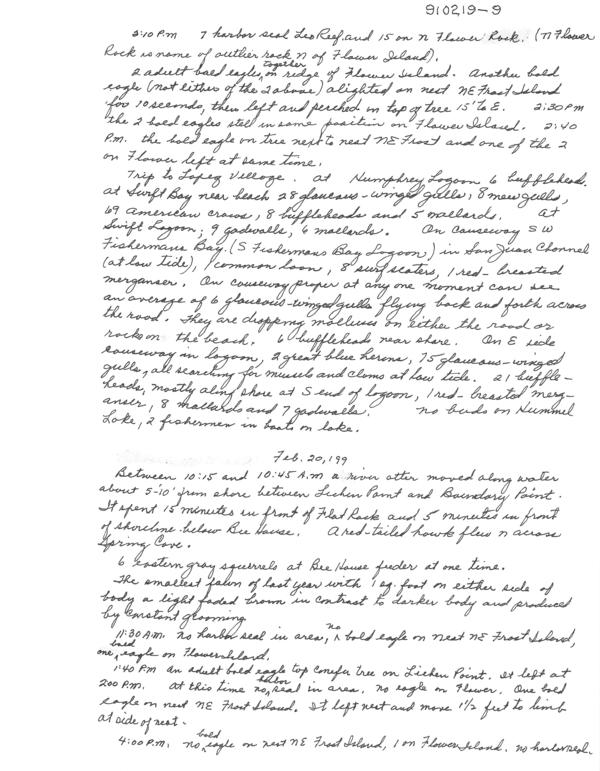 910219-9
2:10 P.M 7 harbor seal Leo Reef and 15 on N Flower Rock. (N Flower
Rock is name of outlier rock N of Flower Island).
2 adult bald eagles together on ridge of Flower Island. Another bald
eagle (not either of the 2 above) alighted on nest NE Frost Island
for 10 seconds, then left and perched on top of tree 15' to E. 2:30 PM
the 2 bald eagles still in same position on Flower Island. 2:40
P.M. the bald eagle on tree next to nest NE Frost and one of the 2
on Flower left at same time.
Trip to Lopez Village. at Humphrey Lagoon 6 buffleheads.
at Swift Bay near beach 28 glaucous-winged gulls, 8 mew gulls,
69 American crows, 8 buffleheads and 5 mallards. at
Swift Lagoon, 9 gadwalls, 6 mallards. On causeway SW
Fishermans Bay (S Fishermans Bay Lagoon) in San Juan Channel
(at low tide), 1 common loon, 8 surf scoters, 1 red-breasted
merganser. On causeway proper at any one moment can see
an average of 6 glaucous-winged gulls flying back and forth across
the road. They are dropping molluscs on either the road or
rocks on the beach. 6 buffleheads near shore. On E side
causeway in lagoon, 2 great blue herons, 75 glaucous-winged
gulls, all searching for mussels and clams at low tide. 21 buffle-
heads, mostly along shore at S end of lagoon, 1 red-breasted merg-
anser, 8 mallards and 7 gadwalls. no birds on Hummel
Lake, 2 fishermen in boats on lake.
Feb. 20, 199
Between 10:15 and 10:45 A.M a river otter moved along water
about 5-10' from shore between Lichen Point and Boundary Point.
It spent 15 minutes in front of Flat Rock and 5 minutes in front
of shoreline below Bee House. A red-tailed hawk flew N across
Spring Cove.
6 eastern gray squirrels at Bee House feeder at one time.
The smallest fawn of last year with 1 sq. foot on either side of
body a light faded brown in contrast to darker body and produced
by constant grooming
11:30 A.M. no harbor seal in area, no bald eagle on nest NE Frost Island,
one bald eagle on Flower Island.
1:40 PM an adult bald eagle top conifer tree on Lichen Point. It left at
2:00 P.M. at this time no harbor seal in area. no eagle on Flower. One bald
eagle on nest NE Frost Island. It left nest and move 1 1/2 feet to limb
at side of nest.
4:00 P.M. no bald eagle on nest NE Frost Island, 1 on Flower Island. no harbor seal.